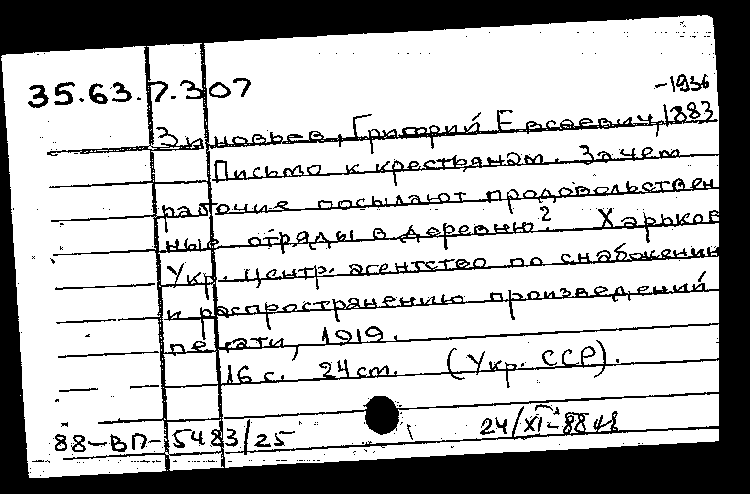 35.63.7.307
-1936
Зиновьев, Григорий Евсеевич, 1883
Письмо к крестьянам. Зачем
рабочие посылают продовольствен
ные отряды в деревню? Харьков
Укр. центр. агентство по снабжении
и распространению произведений
печати, 1919.
16 с. 24 см. (Укр. ССР).
88-ВП-5483/25
24/XI-88